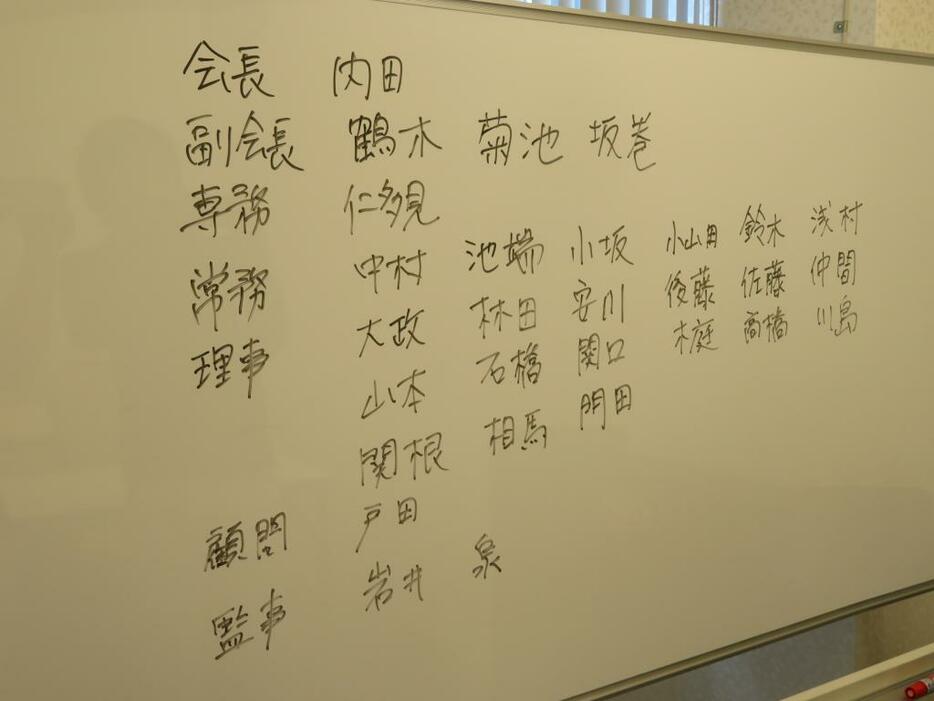 会長 内田
副会長 鶴木 菊池 坂巻
専務 仁多見
常務 中村 池端 小坂 小山田 鈴木 浅村
理事 大政 林田 安川 後藤 佐藤 仲間
山本 石橋 関口 木庭 高橋 川島
関根 相馬 門田
顧問 戸田
監事 岩井 泉